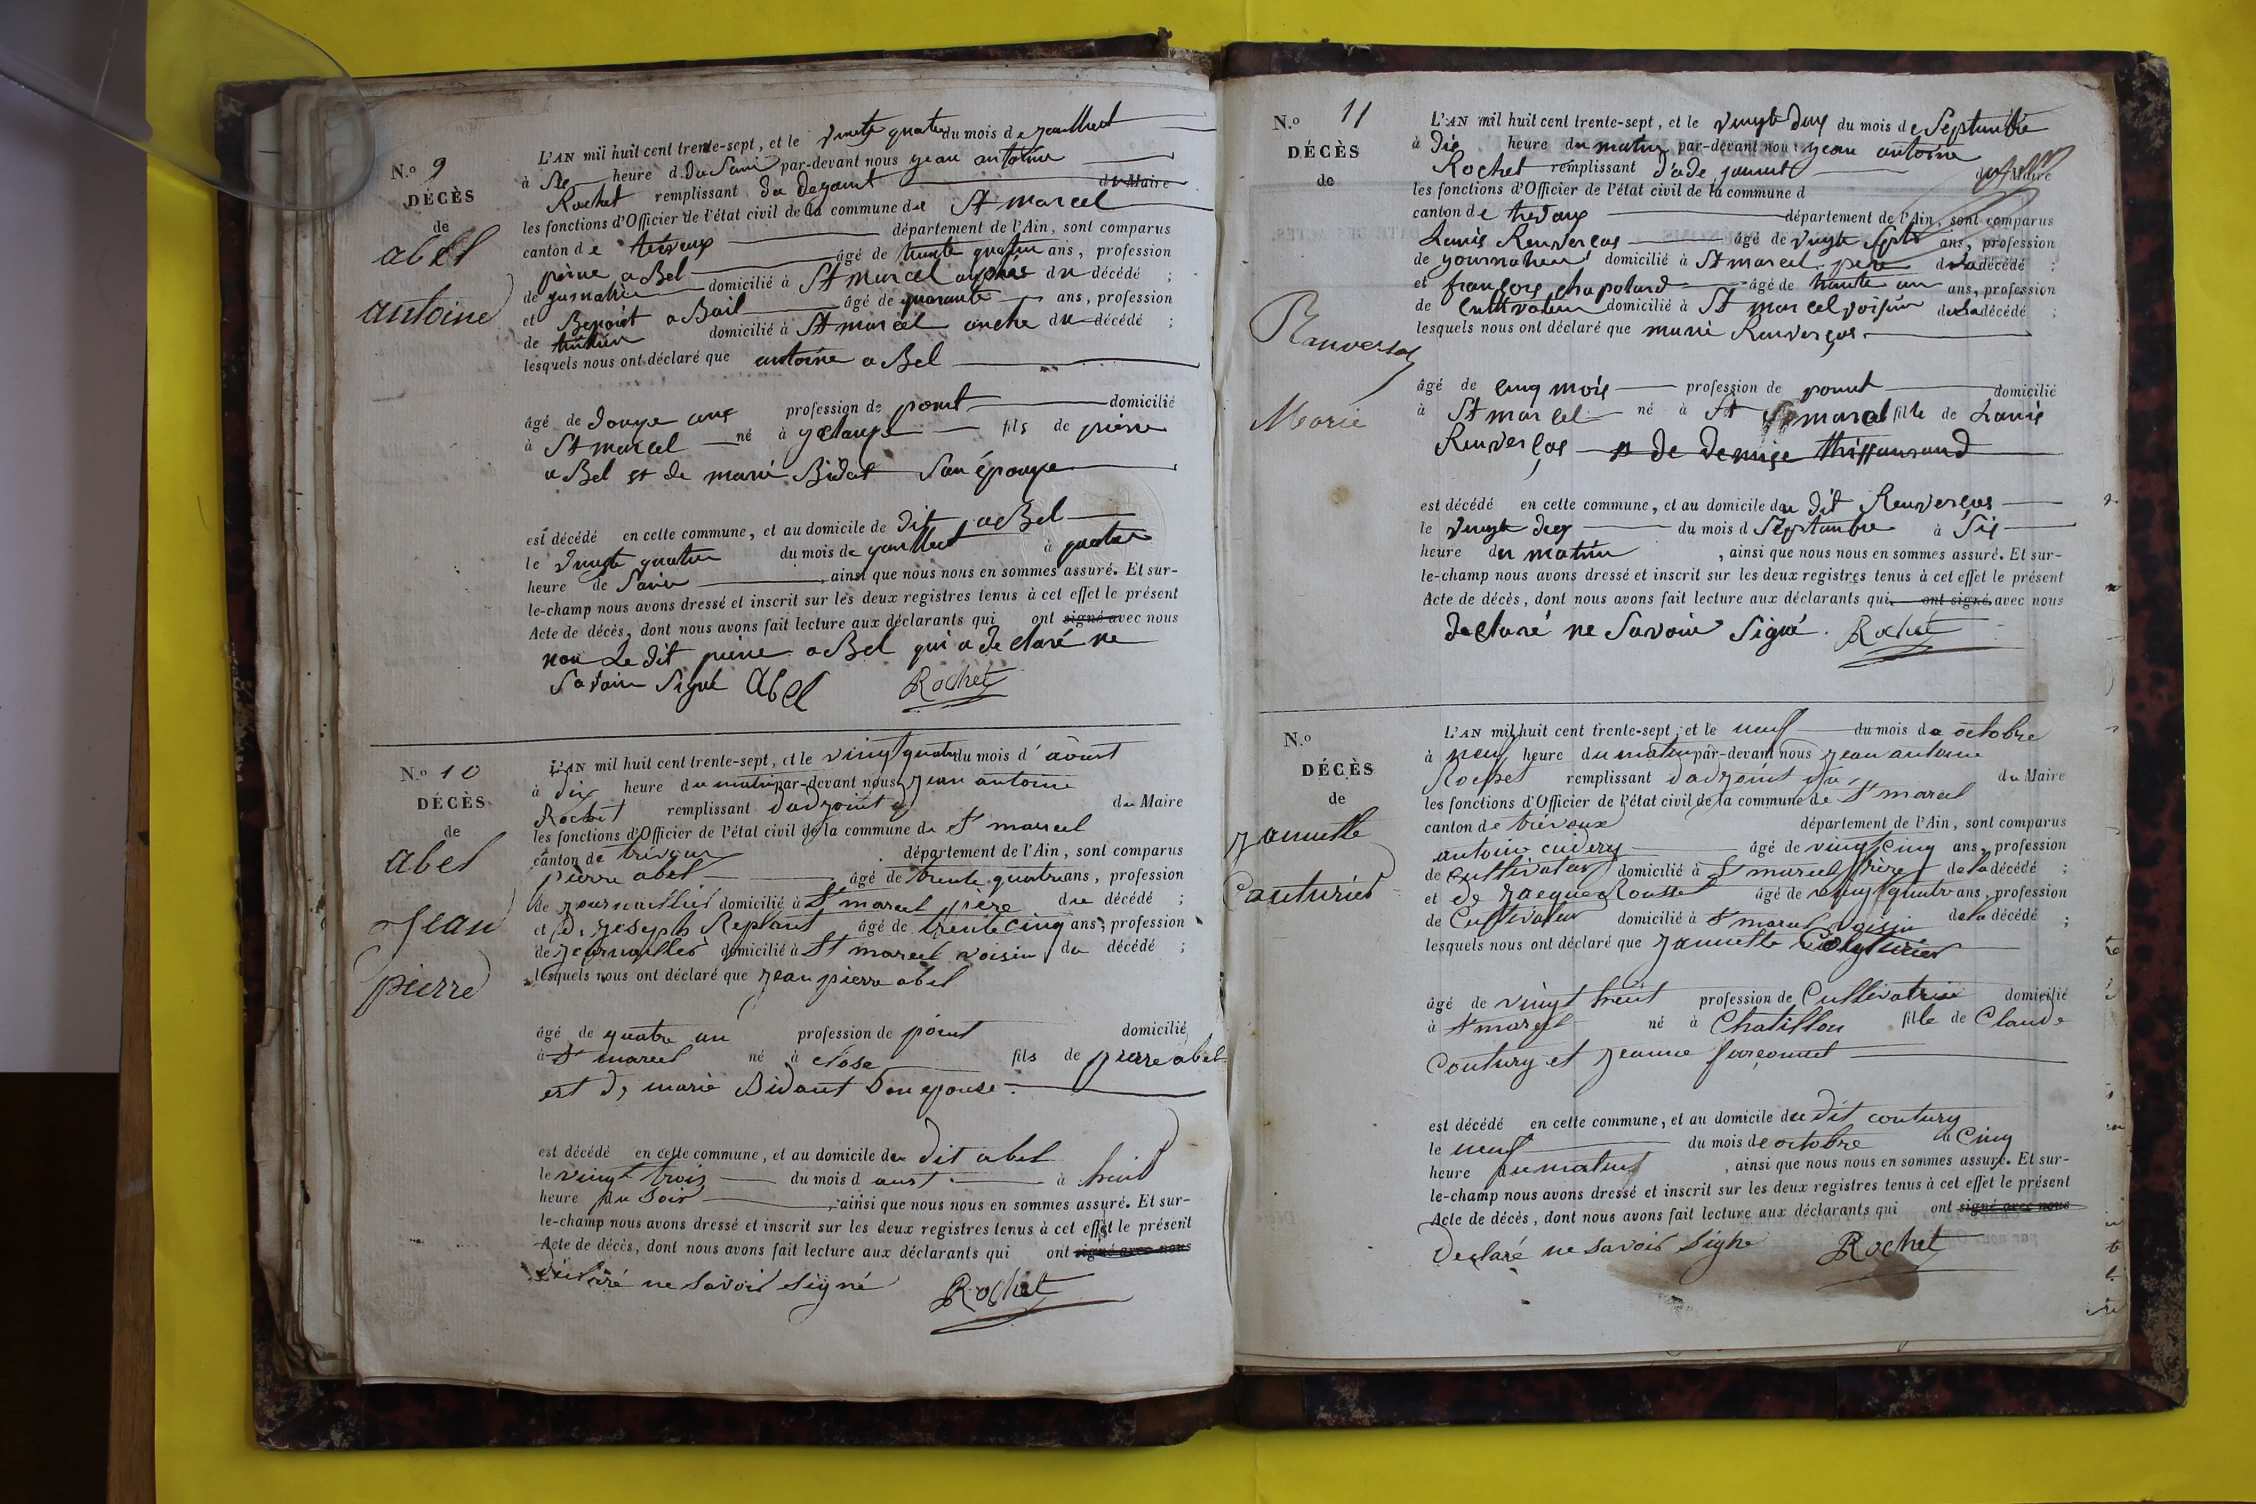 N.o 9
DÉCÈS
de
abel
antoine
L'AN mil huit cent trente-sept, et le vingte quatre du mois de jeaullient
à Sie heure d du Soire par-devant nous jean antoine
Rochet remplissant da dejoint du Maire
les fonctions d'Officier de l'état civil de la commune de St marcel
canton de trévoux département de l'Ain, sont comparus
pierre aBel âgé de trente quatre ans, profession
de domicilié à St marcel du décédé ;
et Benoist aBail âgé de quarante ans, profession
de domicilié à St marcel oncle du décédé ;
lesquels nous ont déclaré que antoine aBel
âgé de Douze ans profession de point domicilié
à St marcel né à fils de pierre
aBel et de marie Bidat Son épouse
est décédé en cette commune, et au domicile de dit aBel
le vingte quatre du mois de à quatre
heure de Soire , ainsi que nous nous en sommes assuré. Et sur-
le-champ nous avons dressé et inscrit sur les deux registres tenus à cet effet le présent
Acte de décès, dont nous avons fait lecture aux déclarants qui ont signé avec nous
non Ledit pierre aBel qui a de claré ne
Savoir Signé Abel Rochet
N.o 10
DÉCÈS
de
abel
Jean
pierre
L'AN mil huit cent trente-sept, et le vingt quatre du mois d'aoust
à dix heure du matin par-devant nous jean antoine
Rochet remplissant d'adjoint du Maire
les fonctions d'Officier de l'état civil de la commune de St marcel
canton de trévoux département de l'Ain, sont comparus
pierre abel âgé de trente quatre ans, profession
de journallier domicilié à St marcel père du décédé ;
et de joseph Replant âgé de trente cinq ans, profession
de journallier domicilié à St marcel voisin du décédé ;
lesquels nous ont déclaré que jean pierre abel
âgé de quatre an profession de point domicilié
à St marcel né à close fils de pierre abel
est de marie Bidaut Son epouse
est décédé en cette commune, et au domicile du dit abel
le vingt trois du mois d aust à huit
heure du soir , ainsi que nous nous en sommes assuré. Et sur-
le-champ nous avons dressé et inscrit sur les deux registres tenus à cet effet le présent
Acte de décès, dont nous avons fait lecture aux déclarants qui ont signé avec nous
déclaré ne Savoir signé Rochet
N.o 11
DÉCÈS
de
Renversas
Marie
L'AN mil huit cent trente-sept, et le vingte deux du mois de Septembre
à dix heure du matin par-devant nous jean antoine
Rochet remplissant d'ade joint du Maire
les fonctions d'Officier de l'état civil de la commune d
canton de trevoux département de l'Ain, sont comparus
Louis Renverças âgé de vingte Septe ans, profession
de domicilié à St marcel père de la décédé ;
et françois chapoland âgé de trante un ans, profession
de Cultivateur domicilié à St marcel voisin de la décédé ;
lesquels nous ont déclaré que marie Renverças
âgé de cinq mois profession de point domicilié
à St marcel né à St marcel fille de Louis
Renverças de Denise thissaurand
est décédé en cette commune, et au domicile du dit Renverças
le vingte deux du mois d Septambre à Sis
heure du matin , ainsi que nous nous en sommes assuré. Et sur-
le-champ nous avons dressé et inscrit sur les deux registres tenus à cet effet le présent
Acte de décès, dont nous avons fait lecture aux déclarants qui ont signé avec nous
declaré ne Savoir Signé. Rochet
N.o
DÉCÈS
de
janette
Couturier
L'AN mil huit cent trente-sept, et le neuf du mois de octobre
à neuf heure du matin par-devant nous jean antoine
Rochet remplissant d'adjoint du Maire
les fonctions d'Officier de l'état civil de la commune de St marcel
canton de trévoux département de l'Ain, sont comparus
antoine âgé de vingt cinq ans, profession
de Cultivateur domicilié à St marcel frère de la décédé ;
et de jacques Rousset âgé de vingt quatre ans, profession
de Cultivateur domicilié à St marcel voisin de la décédé ;
lesquels nous ont déclaré que jannette Couturier
âgé de vingt huit profession de Cultivatrice domicilié
à St marcel né à Chatillon fille de Claude
Coutury et jeanne
est décédé en cette commune, et au domicile du dit coutury
le neuf du mois de octobre à Cinq
heure du matin , ainsi que nous nous en sommes assuré. Et sur-
le-champ nous avons dressé et inscrit sur les deux registres tenus à cet effet le présent
Acte de décès, dont nous avons fait lecture aux déclarants qui ont signé avec nous
Declaré ne savoir Signe Rochet